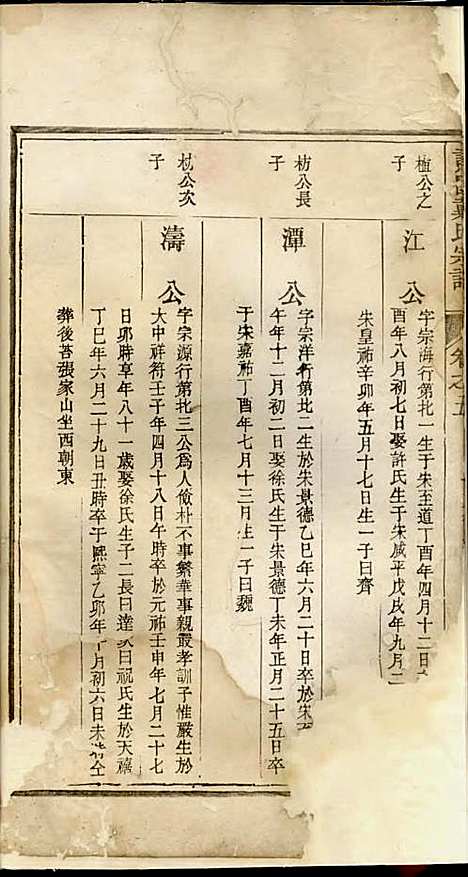 氏宗譜
卷之五
植公之
子
江公
字宗海行第牝一生于宋至道丁酉年四月十二日
酉年八月初七日娶許氏生于宋咸平戊戌年九月二
宋皇祐辛卯年五月十七日生一子曰齊
枋公長
子
潭公
字宗洋行第牝二生於宋景德乙巳年六月二十日卒於宋
午年十二月初二日娶徐氏生于宋景德丁未年正月二十五日卒
于宋嘉祐丁酉年七月十三月生一子曰魏
杫公次
子
濤公
字宗源行第牝三公為人儉朴不事繁華事親嚴孝訓子惟嚴生於
大中祥符壬子年四月十八日午時卒於元祐壬申年七月二十七
日卯時享年八十一歲娶徐氏生子二長曰達次曰祝氏生於天禧
丁巳年六月二十九日丑時卒于熙寧乙卯年十月初六日未時仝
葬後苔張家山坐西朝東